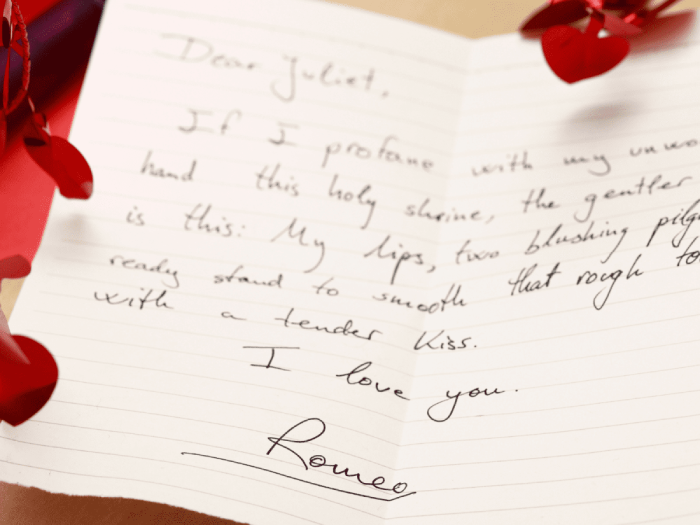 Dear Juliet,
If I profane with my unwo
hand this holy shrine, the gentler
is this: My lips, two blushing pilg
ready stand to smooth that rough to
with a tender kiss.
I love you.
Romeo